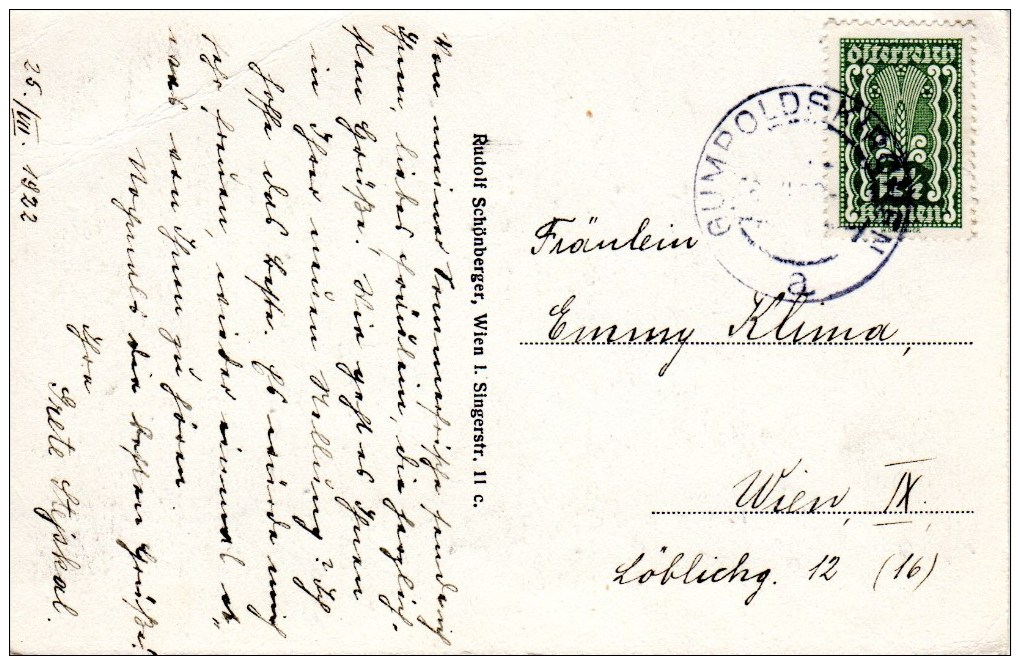 25./VIII. 1922
Von meiner Sommerfrische sende ich
Ihnen, liebes Fräulein, die herzlich-
sten Grüße! Wie geht es Ihnen
in Ihrer neuen Stellung? Ich
hoffe das beste. Es würde mich
sehr freuen, wieder einmal et-
was von Ihnen zu hören.
Nochmals die besten Grüße!
Ihre
Grete Stejskal.
Rudolf Schönberger, Wien I. Singerstr. 11 c.
Österreich
Kronen
GUMPOLDSKIRCHEN
a
Fräulein
Emmy Klima,
Wien, IX.
Löblichg. 12 (16)